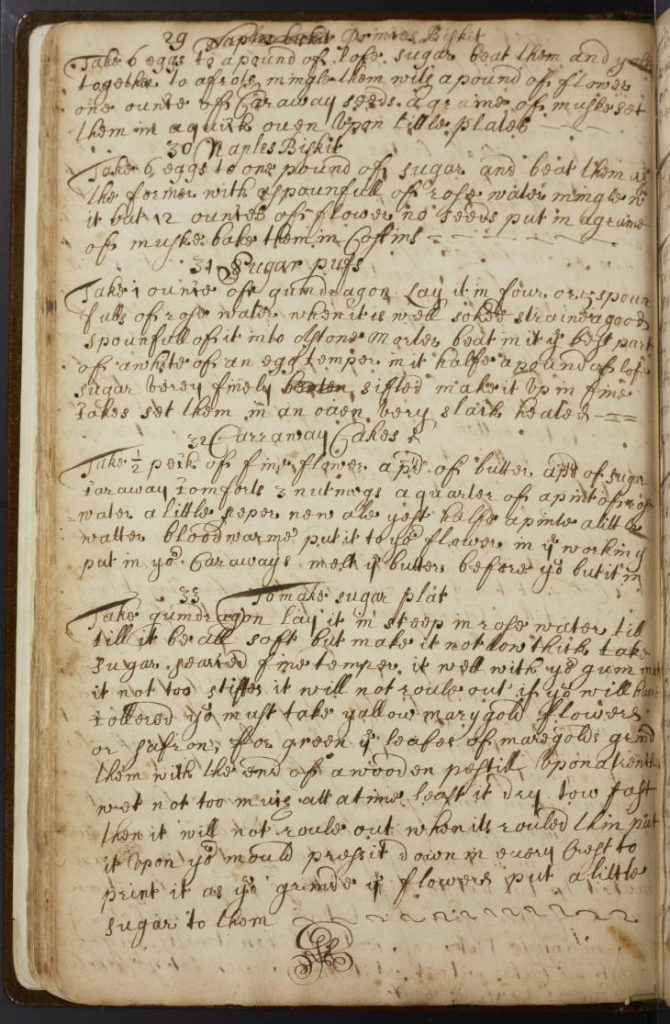 29 Naples biskit Princes Biskit
Take 6 eggs to a pound of lofe sugar beat them and
together to a froth mingle them with a pound of flower
one ounce of Caraway seeds a graine of muske set
them in a quick oven Upon little plates
30 Naples Biskit
Take 6 eggs to one pound of sugar and beat them as
the former with a spounfull of rose water mingle
it but 12 ounces of flower no seeds put in a graine
of muske bake them in Coffins
31 Sugar pufs
Take 1 ounce of gumdragon Lay it in four or 5 spoun
fulls of rose water when it is well soked straine a good
spounfull of it into a stone morter beat in it ye best part
of a white of an egg temper in it halfe a pound of lofe
sugar verey finely beaten sifted make it Up in fine
cakes set them in an oaen very slack heated
32 Carraway Cakes
Take ½ peck of fine flower a pd of butter a pd of sugar
caraway comforts 3 nutmegs a quarter of a pint of rose
water a little peper new ale yest halfe a pinte a little
watter bloodwarme put it to ye flower in ye working
put in yo Caraways melt ye butter before yo but it in
33 To make sugar plat
Take gumdragon lay it in steep in rose water till
till it be all soft but make it not tow thick take
sugar searced fine temper it well with yo gum
it not too stiffe it will not roule out if yo will have
collered yo must take yallow marygold flowers
or safron, for green ye leafes of maregolds grind
them with the end of a wooden pestill Upon a trencher
wet not too much att a time least it dry tow fast
then it will not roule out when its rouled thin put
it Upon yo mould press it down in every Crest to
print it as yo grinde ye flowers put a little
sugar to them